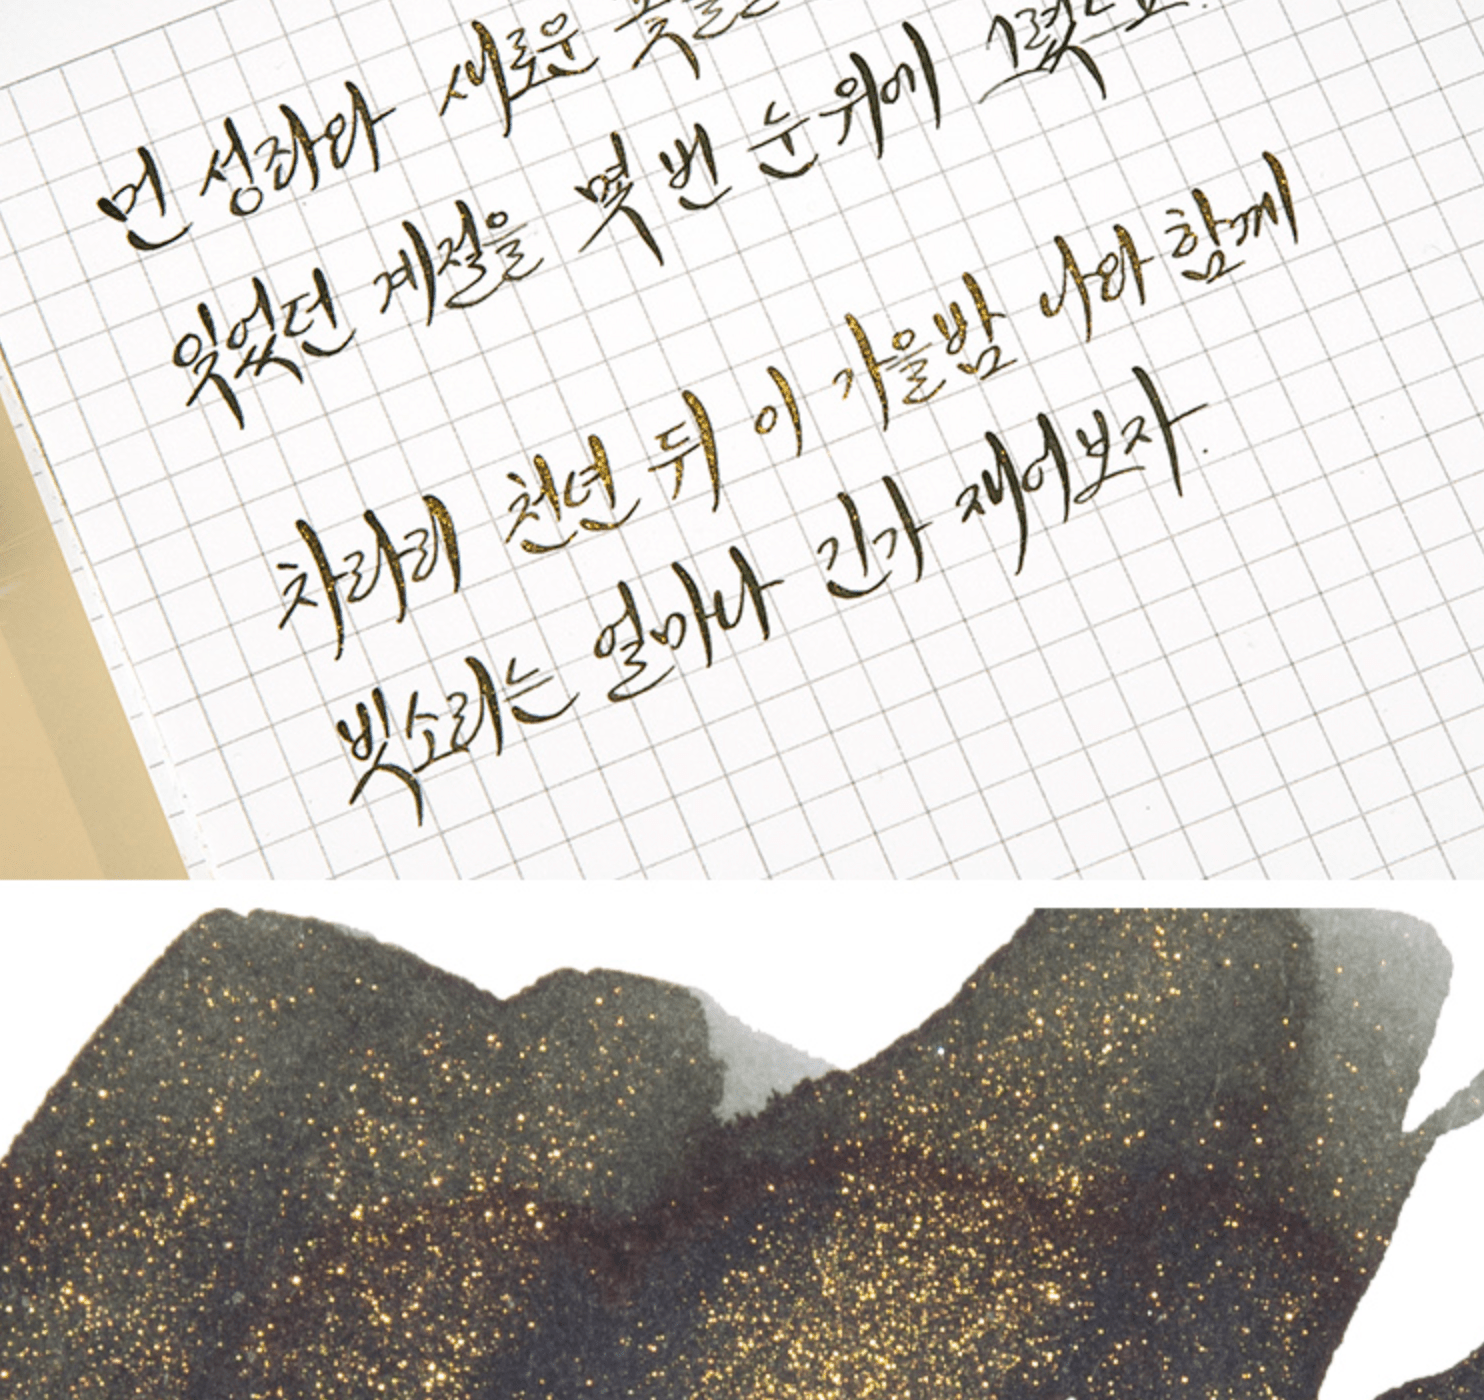 먼 성좌와 새로운 꽃들은
잊었던 계절을 몇 번 눈 위에 그렸느뇨.
차라리 천년 뒤 이 가을밤 나와 함께
빗소리는 얼마나 긴가 재어보자.